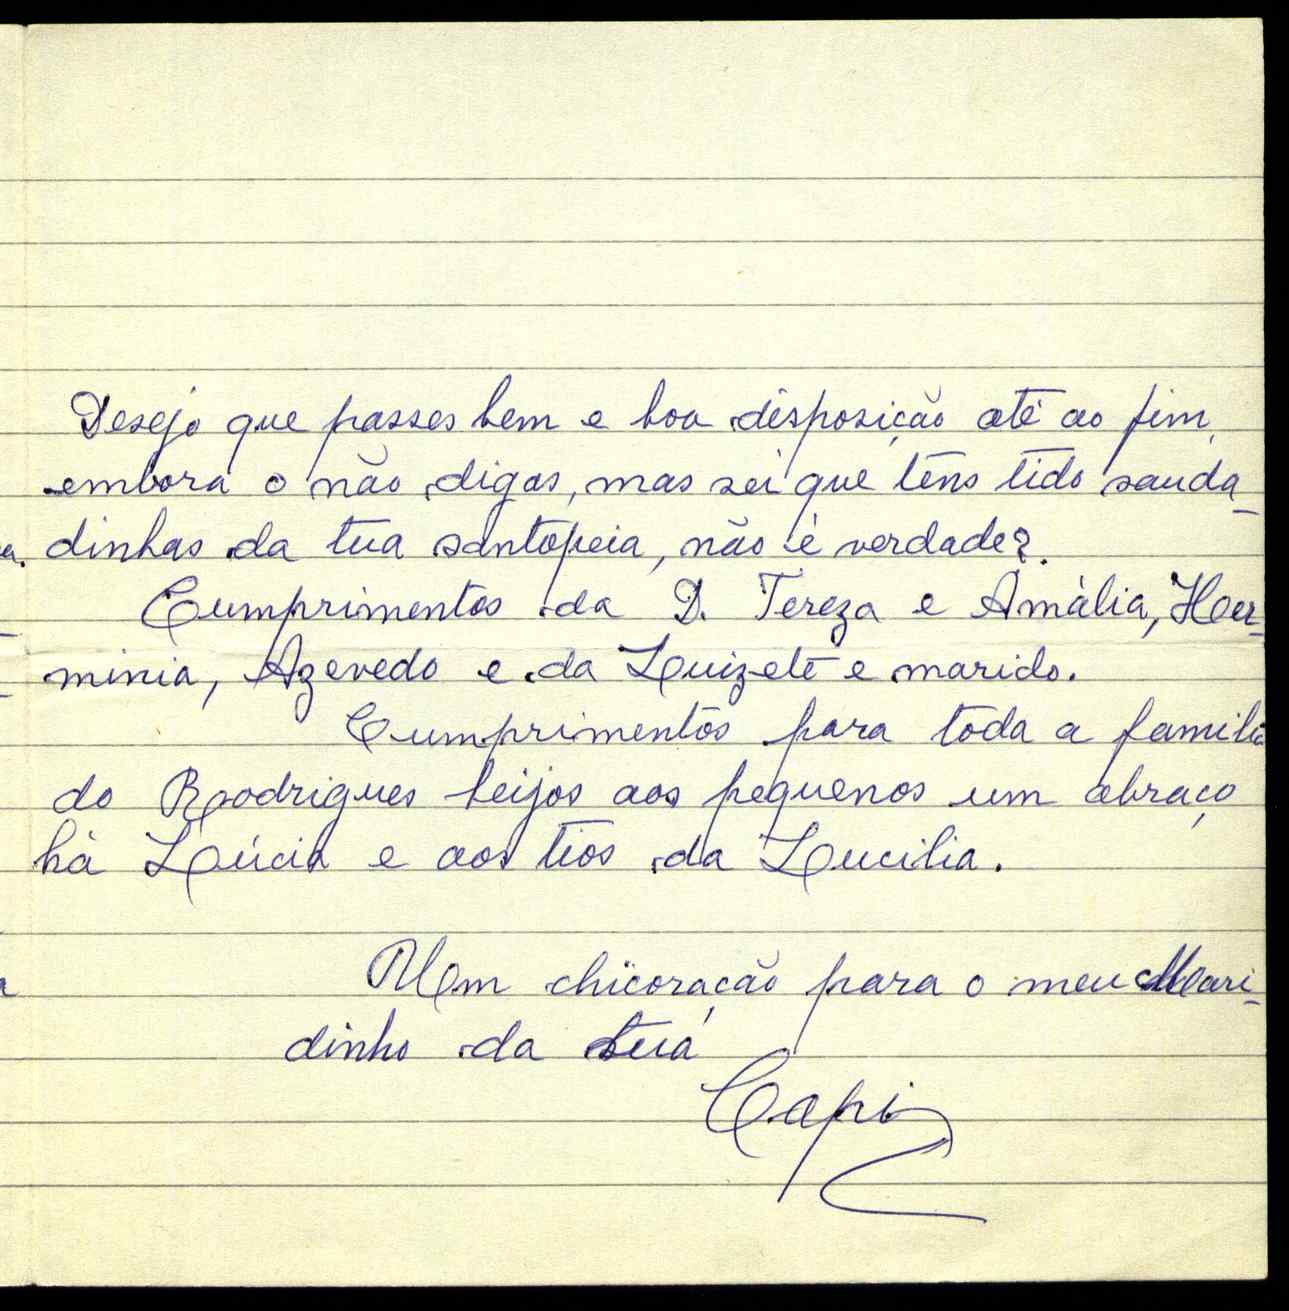 Desejo que passes bem e boa disposição até ao fim,
embora o não digas, mas sei que tens tido sauda-
dinhas da tua santopeia, não é verdade?
Cumprimentos da D. Tereza e Amália, Her-
minia, Azevedo e da Luizete e marido.
Cumprimentos para toda a familia
do Rodrigues beijos aos pequenos um abraço
há Lúcia e aos tios da Lucilia.
Um chicoração para o meu Mari-
dinho da tua
Capi